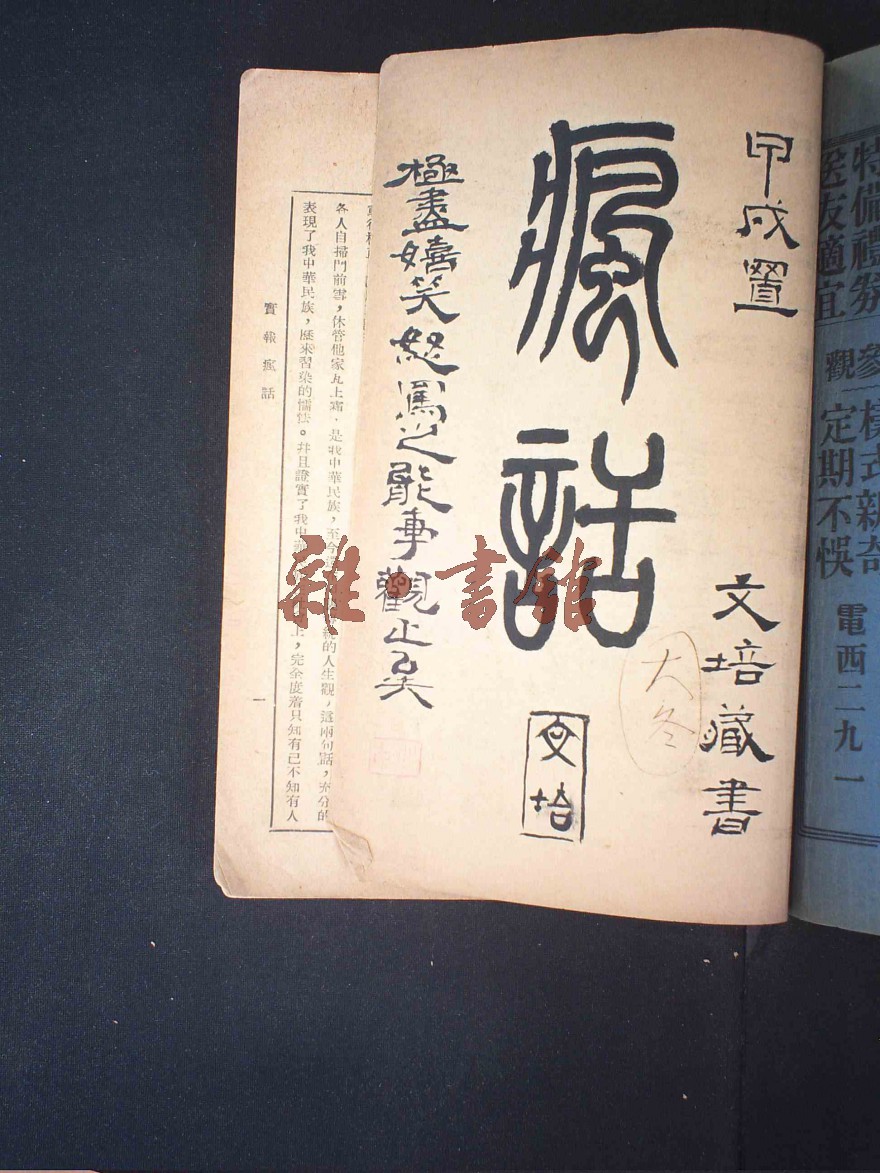 特備禮券
送友適宜
參觀
樣式新奇
定期不悞
電西二九一
甲戍置
文培藏書
瘋話
大冬
文培
極盡嬉笑怒罵之能事觀止矣
各人自掃門前雪，休管他家瓦上霜，是我中華民族，至今
的人生觀，這兩句話，充分的
表現了我中華民族，歷來習染的懦怯。并且證實了我中
上，完全度着只知有己不知有人
實報瘋話
一
雜書館